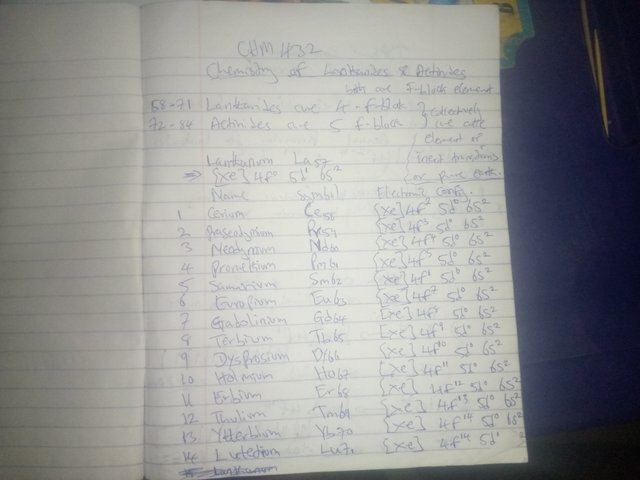 CHM 432
Chemistry of Lanthanides & Actinides
both are F-block element
58-71 Lanthanides are 4-f-block } collectively
72-84 Actinides are 5 f-block } are
element of
Lanthanum La57 inert transitions
⇒ [Xe] 4f⁰ 5d¹ 6s² or
Name Symbol Electronic Config.
1 Cerium Ce58 [Xe] 4f² 5d⁰ 6s²
2 Pr59 [Xe] 4f³ 5d⁰ 6s²
3 Nd60 [Xe] 4f⁴ 5d⁰ 6s²
4 Pm61 [Xe] 4f⁵ 5d⁰ 6s²
5 Samarium Sm62 [Xe] 5d⁰ 6s²
6 Europium Eu63 [Xe] 4f⁷ 5d⁰ 6s²
7 Gabolinium Gd64 [Xe] 5d⁰ 6s²
8 Terbium Tb65 [Xe] 4f⁹ 5d⁰ 6s²
9 Dysprosium Dy66 [Xe] 4f¹⁰ 5d⁰ 6s²
10 Holmium Ho67 [Xe] 4f¹¹ 5d⁰ 6s²
11 Erbium Er68 [Xe] 4f¹² 5d⁰ 6s²
12 Tm69 [Xe] 4f¹³ 5d⁰ 6s²
13 Ytterbium Yb70 [Xe] 4f¹⁴ 5d⁰ 6s²
14 Lutetium Lu71 [Xe] 4f¹⁴ 5d¹ ²